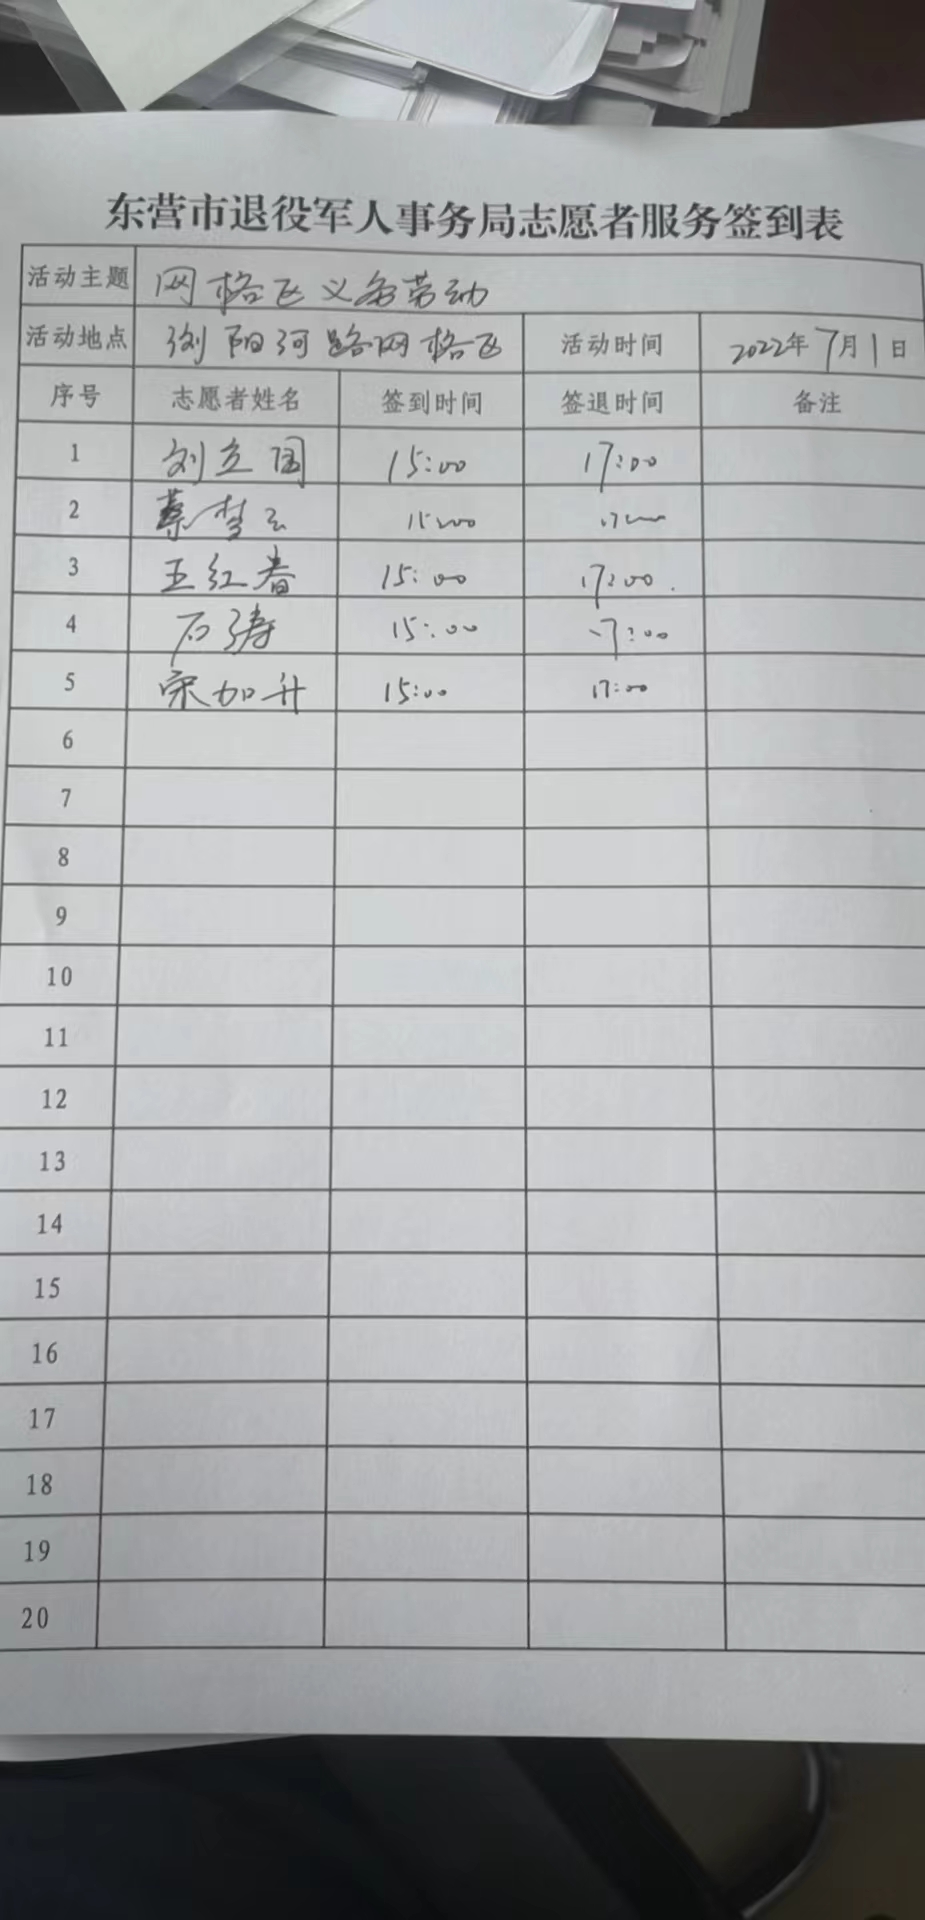 东营市退役军人事务局志愿者服务签到表
活动主题 网格区义务劳动
活动地点 浏阳河路网格区 活动时间 2022年7月1日
序号 志愿者姓名 签到时间 签退时间 备注
1 刘立国 15:00 17:00
2 蔡梦云 15:00 17:00
3 王红春 15:00 17:00.
4 石涛 15:00 17:00
5 宋加升 15:00 17:00
6
7
8
9
10
11
12
13
14
15
16
17
18
19
20